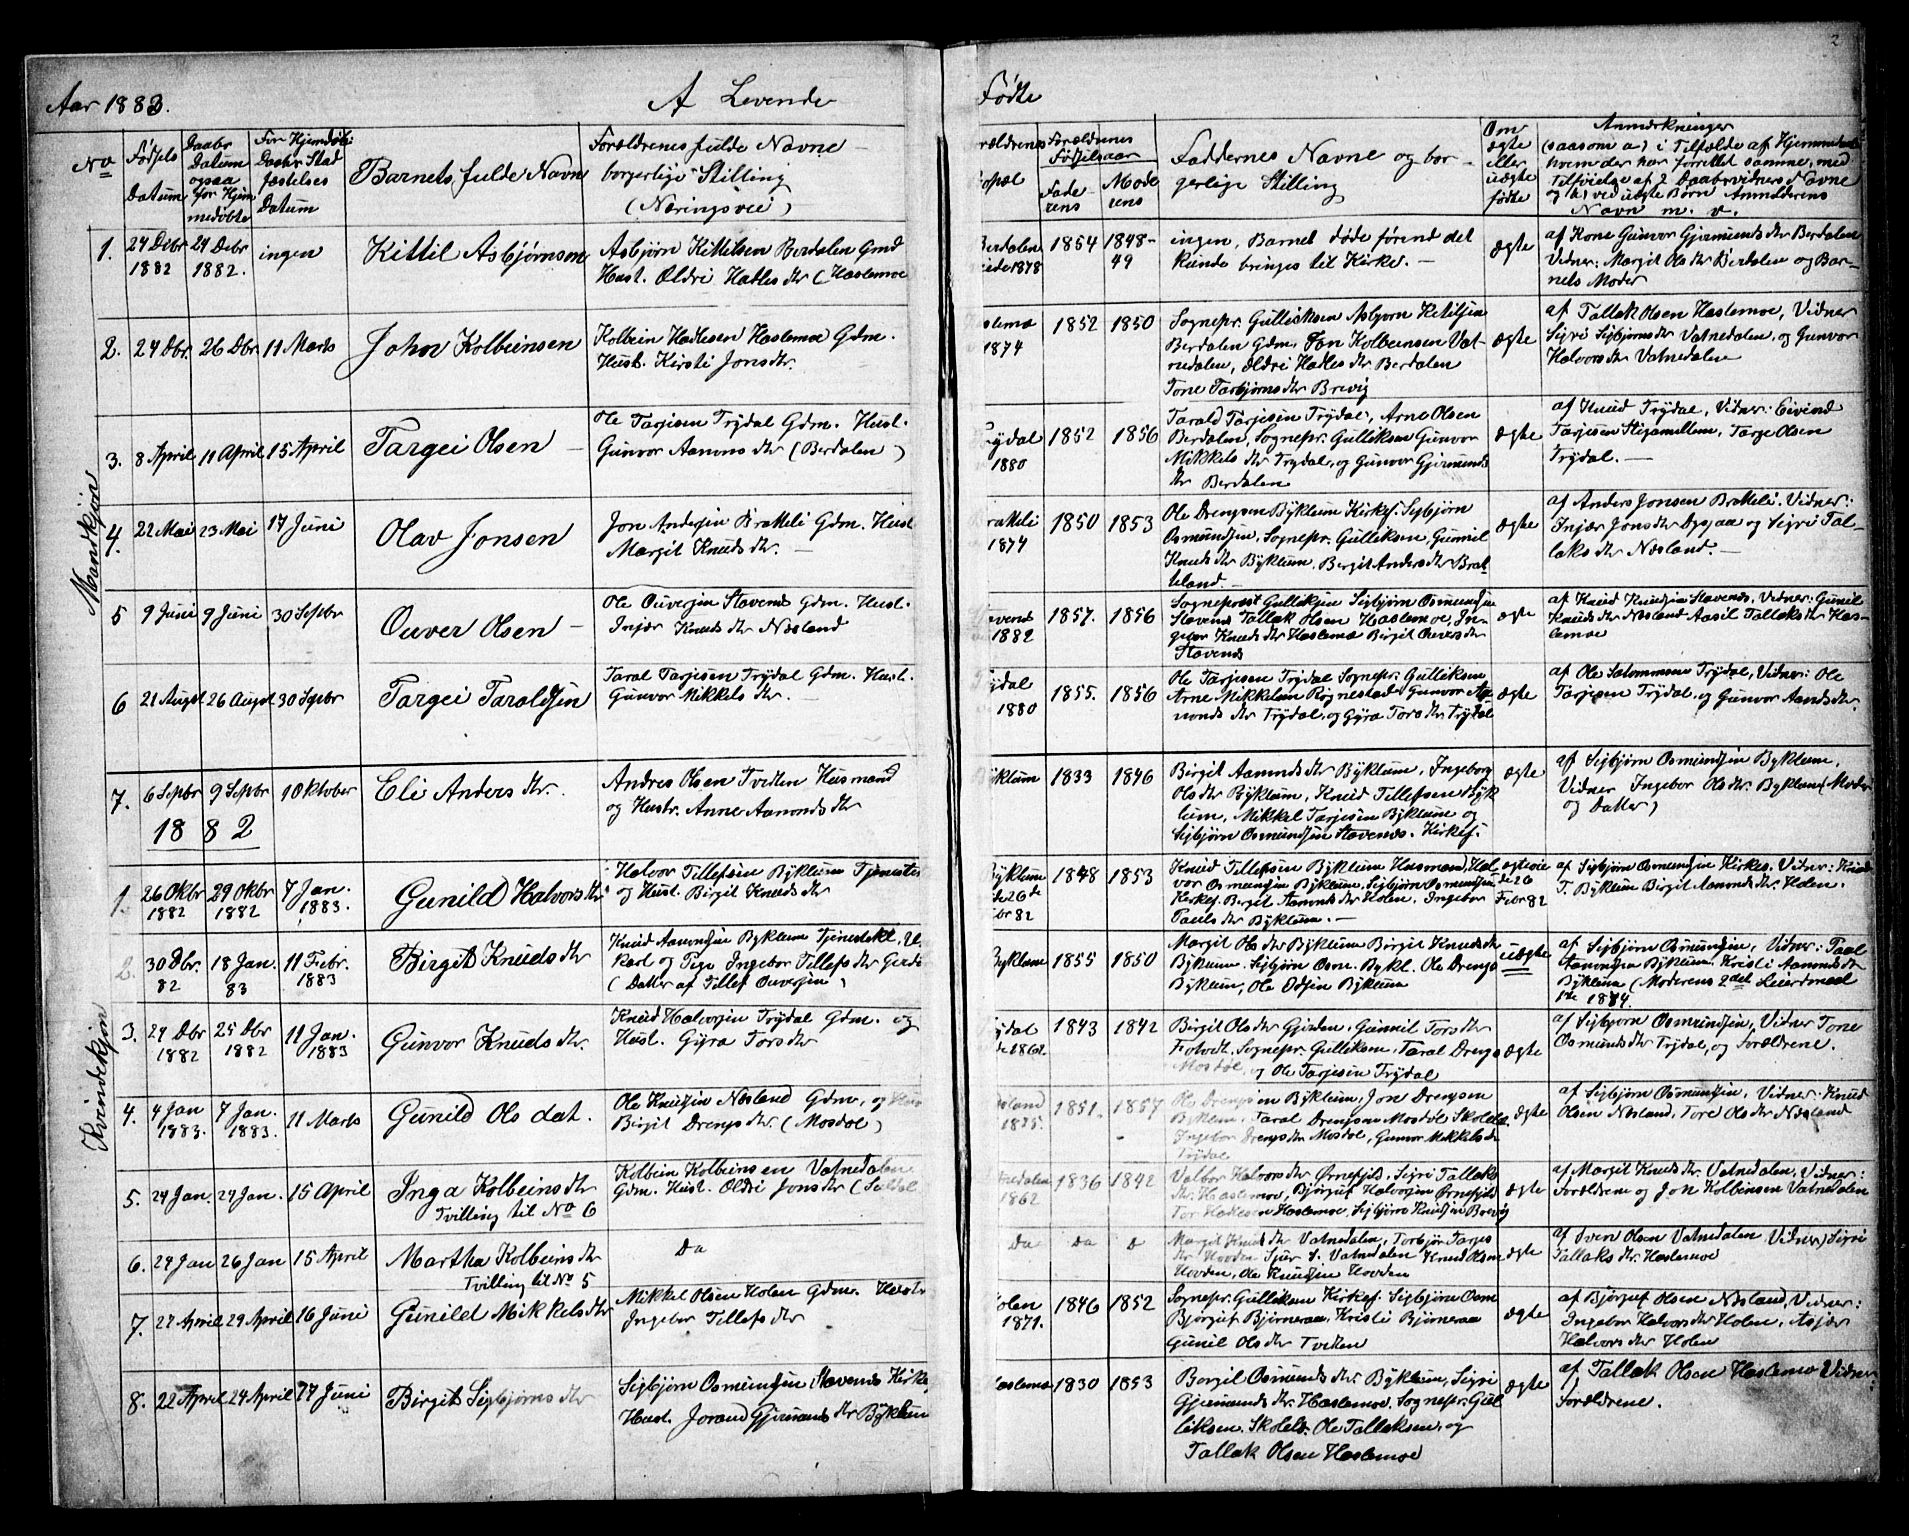 Aar 1883.
A Levende
Født­e
2
No
Fødsels Datum
Daabs Datum ogsaa for Hjemmedøbte
For Hjemdøbt Daabs Stad fæstelses Datum
Barnets fulde Navn
Forældrenes fulde Navne borgerlige Stilling (Næringsvei)
Forældrenes Fødselsaar
Faderens
Moderens
Faddernes Navne og borgerlige Stilling
Om ægte eller uægte fødte
Anmærkninger
(saasom a) i Tilfælde af Hjemmedaab
hvem der har forrettet samme, med
Tilføielse af 2 Daabsvidners Navne
og b) ved uægte Børn Anmelderens
Navn m. v.
Mandkjøn
1. 24 Debr 1882
24 Debr 1882.
ingen
Kittil Asbjørnsen
Asbjørn Kittilsen Berdalen Gmd
Hust. Oldri Hadles dtr (Haslemoe
1854
1848-49
ingen, Barnet døde førend det
kunde bringes til Kirke. —
ægte
af Kone Gunvor Gjermunds dtr Berdalen
Vidner: Margit Ols dtr Berdalen og Bar-
nets Moder
2. 24 Dbr.
26 Dbr
11 Marts
John Kolbeinsen
Kolbein Hadlesen Haslemoe Gdm.
Hust. Kirsti Jons dtr.
1874
1852
1850
Sognepr. Gulliksen Asbjørn Ketilsen
Berdalen Gdm. Jon Kolbeinsen Vat-
nedalen, Oldri Hadles dtr Berdalen
Tone Torbjørns dtr Brevig
ægte
af Tallak Olsen Haslemoe, Vidner
Sigri Sigbjørns dtr Vatnedalen, og Gunvor
Halvors dtr Vatnedalen
3. 8 April
11 April
15 April
Targei Olsen
Ole Tarjesen Trydal Gdm. Hust.
Gunvor Aamuns dtr (Berdalen)
1880
1852
1856
Tarald Tarjesen Trydal, Arne Olsen
Berdalen, Sognepr. Gulliksen Gunvor
Mikkels dtr Trydal, og Gunvor Gjermunds
dtr Berdalen
ægte
af Knud Trydal, Vidner: Eivind
Tarjesen Stigamellem, Targe Olsen
Trydal. —
4. 22 Mai
23 Mai
17 Juni
Olav Jonsen
Jon Andersen Bratteli Gdm. Hust
Margit Knuds dtr. —
1874
1850
1853
Ole Drengsen Bÿklum Kirkes. Sigbjørn
Osmundsen, Sognepr. Gulliksen, Gunnil
Knuds dtr Bÿklum, Bergit Anders dtr Brat-
teland. —
ægte
af Anders Jonsen Bratteli. Vidner:
Injær Jons dtr Dysjaa og Sigri Tal-
laks dtr Næsland. —
5 9 Juni
9 Juni
30 Septbr
Ouver Olsen —
Ole Ouversen Stavenes Gdm. Hust.
Injær Knuds dtr Næsland
1882
1857.
1856
Sogneprest Gulliksen Sigbjørn Osmundsen
Stavenes Tallak Olsen Haslemoe, In-
gebor Knuds dtr Haslemo Birgit Ouvers dtr
Stavenes
ægte
af Knud Knudsen Stavenes, Vidner: Gunil
Knuds dtr Næsland Aasil Tallaks dtr Has-
lemoe
6 21 Augst
26 Augst
30 Septbr
Targei Taraldsen
Taral Tarjesen Trydal Gdm. Hust.
Gunvor Mikkels dtr. —
1880
1855.
1856
Ole Tarjesen Trydal Sognepr. Gulliksen
Arne Mikkelsen Rygnestad Gunvor Aa-
monds dtr Trydal, og Gyra Tors dtr Trydal
ægte
af Ole Salommesen Trydal, Vidner: Ole
Tarjesen Trydal, og Gunvor Aamds dtr.
7. 6 Septbr
9 Septbr
1 Oktober
Eli Anders dtr.
Andres Olsen Tveiten Husmand
og Hustr. Anne Aamonds dtr
Bÿklum
1833
1846
Birgit Aamunds dtr Bÿklum, Ingeborg
Ols dtr Bÿklum, Knud Tillefsen Bÿk
lum, Mikkel Tarjesen Bÿklum og
Sigbjørn Osmundsen Stavenes. Kirkes.
ægte
af Sigbjørn Osmundsen Byklum,
Vidner Ingebor Ols dtr. Byklum (Moder
og Datter)
1882
Kvindekjøn
1. 26 Oktbr 1882
29 Oktbr 1882
7 Jan. 1883.
Gunild Halvors dtr
Halvor Tillefsen Bÿklum Tjenestek
og Hust. Birgit Knuds dtr
Bÿklum
1848
1853
Knud Tillefsen Bÿklum Husmand, Hal
vor Osmundsen Bÿklum, Sigbjørn Osmundsen
Kirkes. Birgit Aamonds dtr Holen, Ingebor
Pauls dtr Bÿklum. —
ægte vie de 26 Febr 82
af Sigbjørn Osmundsen Kirkes. Vidner: Knud
T. Bÿklum Birgit Aamonds dtr. Holen.
2. 30 Dbr. 82
18 Jan. 83
11 Febr. 1883
Birgit Knuds dtr
Knud Aamundsen Byklum Tjenestekl.
karl og Pige Ingebor Tillefs dtr
(Datter af Tillef Ouversen)
Byklum
1855
1850
Margit Ols dtr Bÿklum Birgit Knuds dtr
Bÿklum. Sigbjørn Osm. Bykl. Ole Drengs
Bÿklum, Ole Odsen Bÿklum
uægte
af Sigbjørn Osmundsen, Vidner: Paal
Aamundsen Bÿklum, Kristi Aamonds dtr
Bÿklum (Moderens 2det Leiersmaal
1ste 1874.
3. 24 Dbr 1882
25 Dbr 1882
11 Jan. 1883
Gunvor Knuds dtr.
Knud Halvorsen Trydal Gdm. og
Hust. Gyra Tors dtr
1843
1842
Birgit Ols dtr Gjerden, Gunnil Tors dtr
Sognepr. Gulliksen, Taral Drengs
Mosdøl, og Ole Tarjesen Trydal
ægte
af Sigbjørn Osmundsen, Vidner Tone
Osmunds dtr Trydal, og Forældrene.
4. 4 Jan 1883.
7 Jan. 1883.
11 Marts
Gunild Ols dat.
Ole Knudsen Næsland Gdm, og Hust
Birgit Drengs dtr. (Mosdøl)
1875.
1851.
1857
Ole Drengsen Bÿklum, Jon Drengsen
Byklum. Taral Drengsen Mosdøl Skolelr.
Ingebor Drengs dtr Mosdøl, Gunvor Mikkels dtr
Trydal
ægte
af Sigbjørn Osmundsen, Vidner: Knud
Olsen Næsland, Tore Ols dtr Næsland
5. 24 Jan
24 Jan.
15 April
Inga Kolbeins dtr
Tvilling til No 6
Kolbein Kolbeinsen Vatnedalen
Gdm. Hust. Oldri Jons dtr
1862
1836
1842
Valbor Halvors dtr. Ørnefjeld, Sigri Tallaks
dtr. Haslemoe, Bjørguf Halvorsen Ørnefjeld
Haslemoe, Sigbjørn Knudsen Brevig
ægte
af Margit Knuds dtr. Vatnedalen, Vidner:
Forældrene og Jon Kolbeinsen Vatnedalen
6. 24 Jan
26 Jan
15 April
Martha Kolbeins dtr
Tvilling til No 5
Do
Do
Do
Margit Knuds dtr Vatnedalen, Torbjør Tarjes
dtr Hovden Vatnedalen Knud Olsen
Hovden, Ole Knudsen Hovden
ægte
af Sven Olsen Vatnedalen Vidner, Sigri
Tallaks dtr. Haslemoe
7. 27 April
29 April
16 Juni
Gunild Mikkels dtr
Mikkel Olsen Holen Gdm. Hustr
Ingebor Tillefs dtr
1871.
1846
1852
Sognepr. Gulliksen Kirkes. Sigbjørn Osm
Bjørguf Bjørneraa. Kristi Bjørneraa
Gunil Ols dtr Tveiten
ægte
af Bjørguf Olsen Næsland, Vidner:
Ingebor Halvors dtr Holen, Asjær
Halvors dtr Holen
8. 22 April
24 April
17 Juni
Birgit Sigbjørns dtr
Sigbjørn Osmundsen (Stavenes Kirkes
Hust. Joran Gjermunds dtr Bÿklum
1830
1853
Borgil Osmunds dtr Bÿklum, Sigri
Gjermunds dtr. Haslemoe, Sognepr. Gul
liksen. Skolelr. Ole Tallaksen, og
Tallak Olsen Haslemoe
ægte
af Tallak Olsen Haslemo Vidner:
Forældrene.